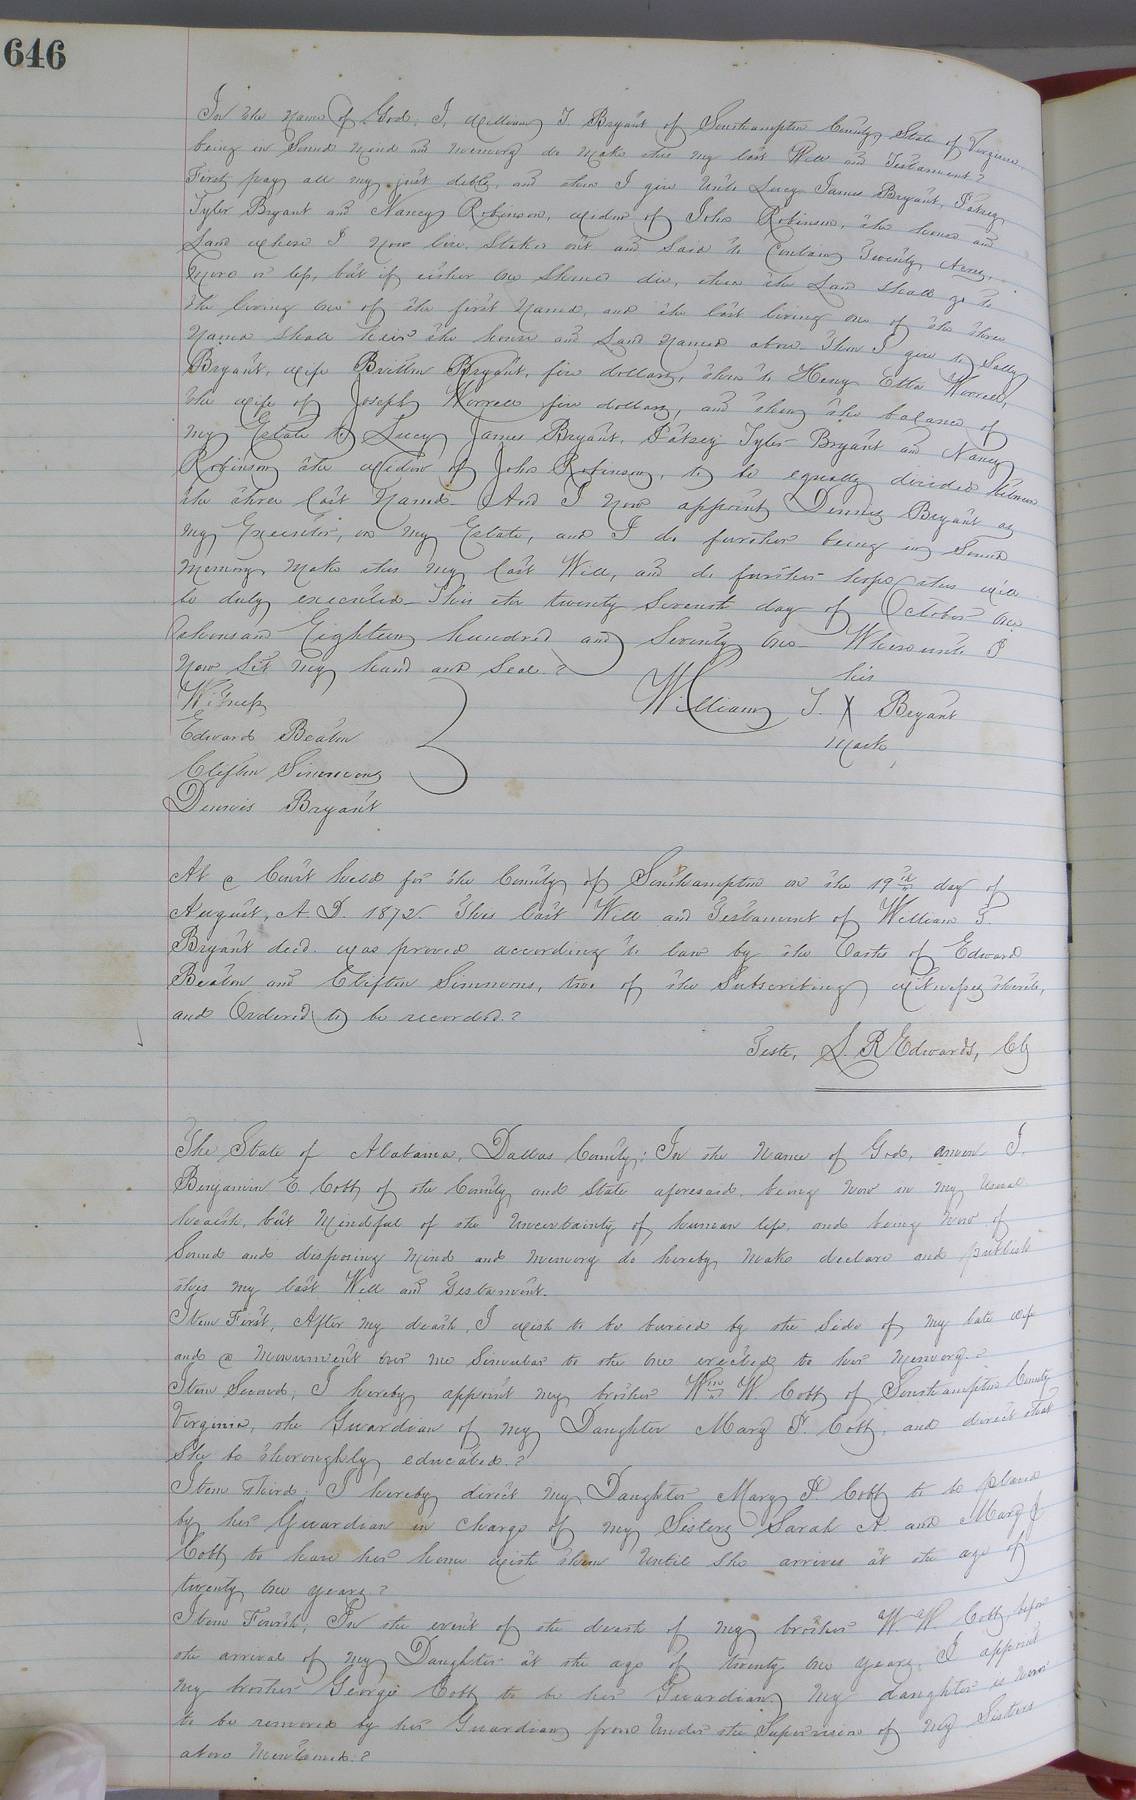 646
In the name of God, I, William T. Bryant of Southampton County, State of Virginia
being in Sound mind and memory do make this my last Will and Testament?
First pay all my just debts, and then I give Unto Lucy James Bryant, Patsey
Tyler Bryant and Nancy Robinson, widow of John Robinson, the house and
Land where I now live. Stakes out and Said to Contain Twenty Acres,
more or less, but if either one Should die, then the Land shall go to
the living one of the first named, and the last living one of the three
named shall heir the house and Land named above. Then I give to Sally
Bryant, wife Britton Bryant, five dollars, then to Heny Etta Worrell,
the wife of Joseph Worrell five dollars, and then the balance of
my Estate to Lucy James Bryant, Patsey Tyler Bryant and Nancy
Robinson the widow of John Robinson, to be equally divided between
the three last named. And I now appoint Dennis Bryant as
my Executor, on my Estate, and I do further being in Sound
memory make this my last Will, and do further hope this will
be duly executed. This the twenty Seventh day of October one
thousand Eighteen hundred and Seventy One. Whereunto I
now Set my hand and Seal?
his
Witness William T. X Bryant
Edward Beaton mark,
Clifton Simmons
Dennis Bryant
At a Court held for the County of Southampton on the 19th day of
August, A. D. 1872. This last Will and Testament of William T.
Bryant decd. was proved according to law by the Oaths of Edward
Beaton and Clifton Simmons, two of the Subscribing witnesses thereto,
and Ordered to be recorded.?
Teste, L. R Edwards, Clk
The State of Alabama, Dallas County: In the name of God, amen I,
Benjamin E. Cobb of the County and State aforesaid, being now in my usual
health, but mindful of the Uncertainty of human life, and being now of
Sound and disposing mind and memory do hereby make declare and publish
this my last Will and Testament.
Item First, After my death, I wish to be buried by the Side of my late wife
and a monument over me Simular to the one erected to her memory.?
Item Second, I hereby appoint my brother Wm W. Cobb of Southampton County
Virginia, the Guardian of my Daughter Mary P. Cobb, and direct that
She be thoroughly educated.?
Item Third; I hereby direct my Daughter Mary P. Cobb to be placed
by her Guardian in charge of my Sisters Sarah A. and Mary J
Cobb to have her home with them Until She arrives at the age of
twenty one years?
Item Fourth; In the event of the death of my brother W. W Cobb before
the arrival of my Daughter at the age of twenty one years, I appoint
my brother George Cobb to be her Guardian, My daughter is never
to be removed by her Guardian from Under the Supervision of my Sisters
above mentioned.?